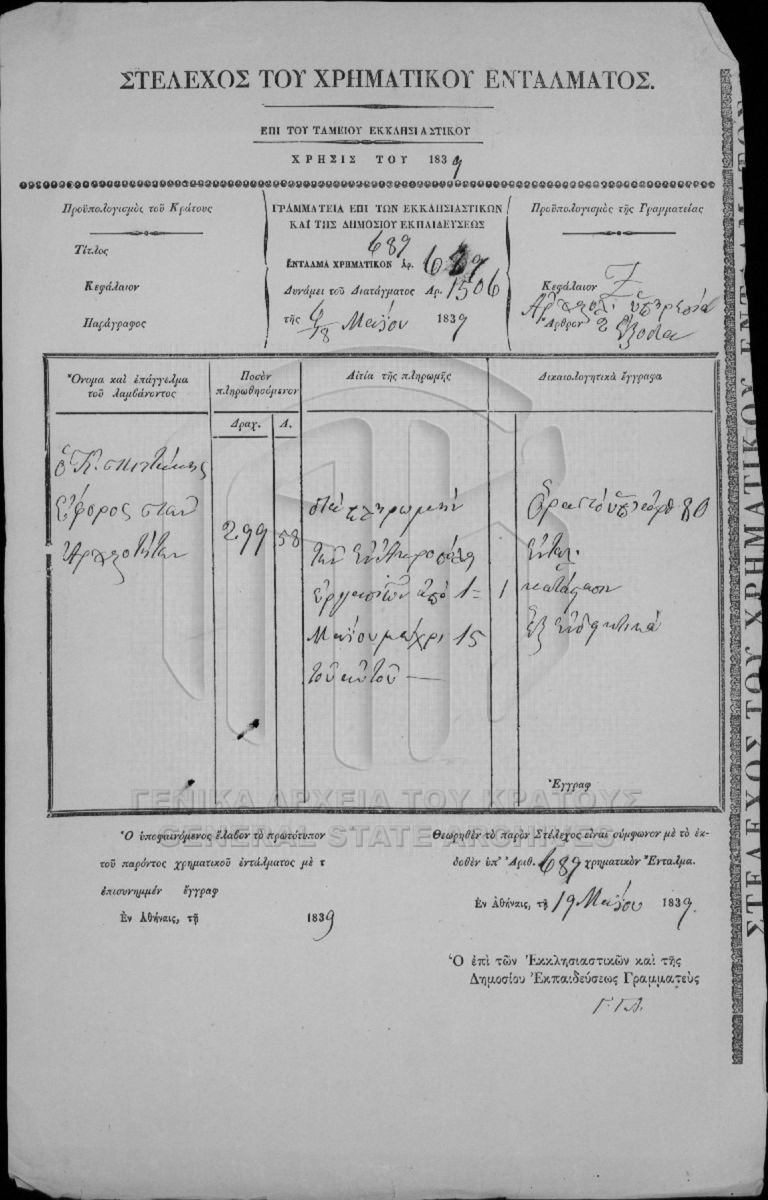 ΣΤΕΛΕΧΟΣ ΤΟΥ ΧΡΗΜΑΤΙΚΟΥ ΕΝΤΑΛΜΑΤΟΣ.
ΕΠΙ ΤΟΥ ΤΑΜΕΙΟΥ ΕΚΚΛΗΣΙΑΣΤΙΚΟΥ
ΧΡΗΣΙΣ ΤΟΥ 1839
Προϋπολογισμὸς τοῦ Κράτους
Τίτλος
Κεφάλαιον
Παράγραφος
ΓΡΑΜΜΑΤΕΙΑ ΕΠΙ ΤΩΝ ΕΚΚΛΗΣΙΑΣΤΙΚΩΝ
ΚΑΙ ΤΗΣ ΔΗΜΟΣΙΟΥ ΕΚΠΑΙΔΕΥΣΕΩΣ
689
ΕΝΤΑΛΜΑ ΧΡΗΜΑΤΙΚΟΝ Αρ. 689
Δυνάμει τοῦ Διατάγματος Αρ. 1506
τῆς 6/18 Μαΐου 1839
Προϋπολογισμὸς τῆς Γραμματείας
Κεφάλαιον Ζ
Ἀρχαιολ. ὑπηρεσία
Ἄρθρον 2 Ἔξοδα
Ὄνομα καὶ ἐπάγγελμα
τοῦ λαμβάνοντος
Ποσὸν
πληρωθησόμενον
Δραχ. Λ.
Αἰτία τῆς πληρωμῆς
Δικαιολογητικὰ ἔγγραφα
ὁ Κ. Πιττάκης
Ἔφορος τῶν
Ἀρχαιοτήτων
299 58
διὰ πληρωμὴν
τῶν ἐν Ἀκροπόλει
ἐργασιῶν ἀπὸ 1
Μαΐου μέχρι 15
τοῦ αὐτοῦ
80
1 κατάστασιν
Ἔγγραφ
Ὁ ὑποφαινόμενος ἔλαβον τὸ πρωτότυπον
τοῦ παρόντος χρηματικοῦ ἐντάλματος μὲ τ
ἐπισυνημμέν ἔγγραφ
Ἐν Ἀθήναις, τῇ 1839
Θεωρηθὲν τὸ παρὸν Στέλεχος εἶναι σύμφωνον μὲ τὸ ἐκ-
δοθὲν ὑπ' Ἀριθ. 689 χρηματικὸν Ἔνταλμα.
Ἐν Ἀθήναις, τῇ 19 Μαΐου 1839.
Ὁ ἐπὶ τῶν Ἐκκλησιαστικῶν καὶ τῆς
Δημοσίου Ἐκπαιδεύσεως Γραμματεὺς
ΣΤΕΛΕΧΟΣ ΤΟΥ ΧΡΗΜΑΤΙΚΟΥ ΕΝΤΑΛΜΑΤΩΝ
ΓΕΝΙΚΑ ΑΡΧΕΙΑ ΤΟΥ ΚΡΑΤΟΥΣ
GENERAL STATE ARCHIVES